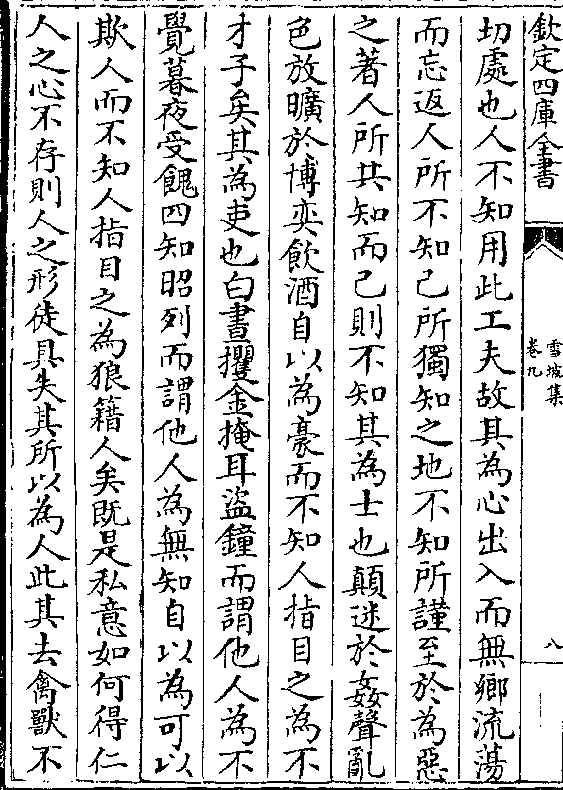 欽定四庫全書
雪坡集
卷九
八
切處也人不知用此工夫故其為心出入而無鄉流蕩
而忘返人所不知己所獨知之地不知所謹至於為惡
之著人所共知而己則不知其為士也顛迷於姦聲亂
色放曠於博奕飲酒自以為豪而不知人指目之為不
才子矣其為吏也白晝攫金掩耳盜鐘而謂他人為不
覺暮夜受餽四知昭列而謂他人為無知自以為可以
欺人而不知人指目之為狼籍人矣既是私意如何得仁
人之心不存則人之形徒具失其所以為人此其去禽獸不